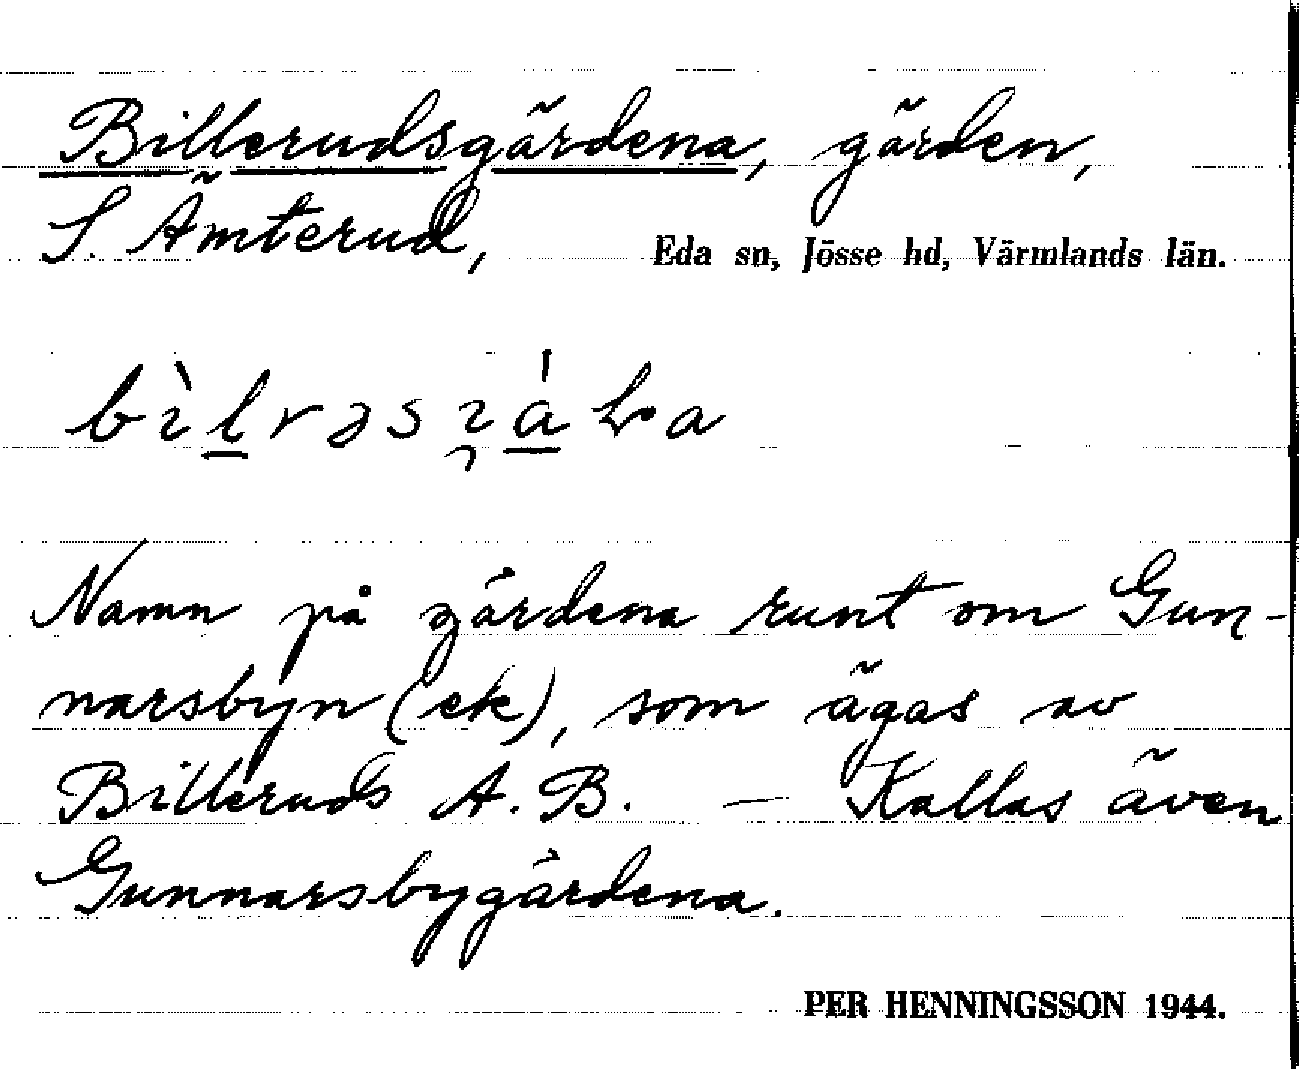 Billerudsgärdena, gärden,
S. Ämterud, Eda sn, Jösse hd, Värmlands län.
Namn på gärdena runt om Gun-
narsbyn (ek), som ägas av
Billeruds A.B. — Kallas även
Gunnarsbygärdena.
PER HENNINGSSON 1944.